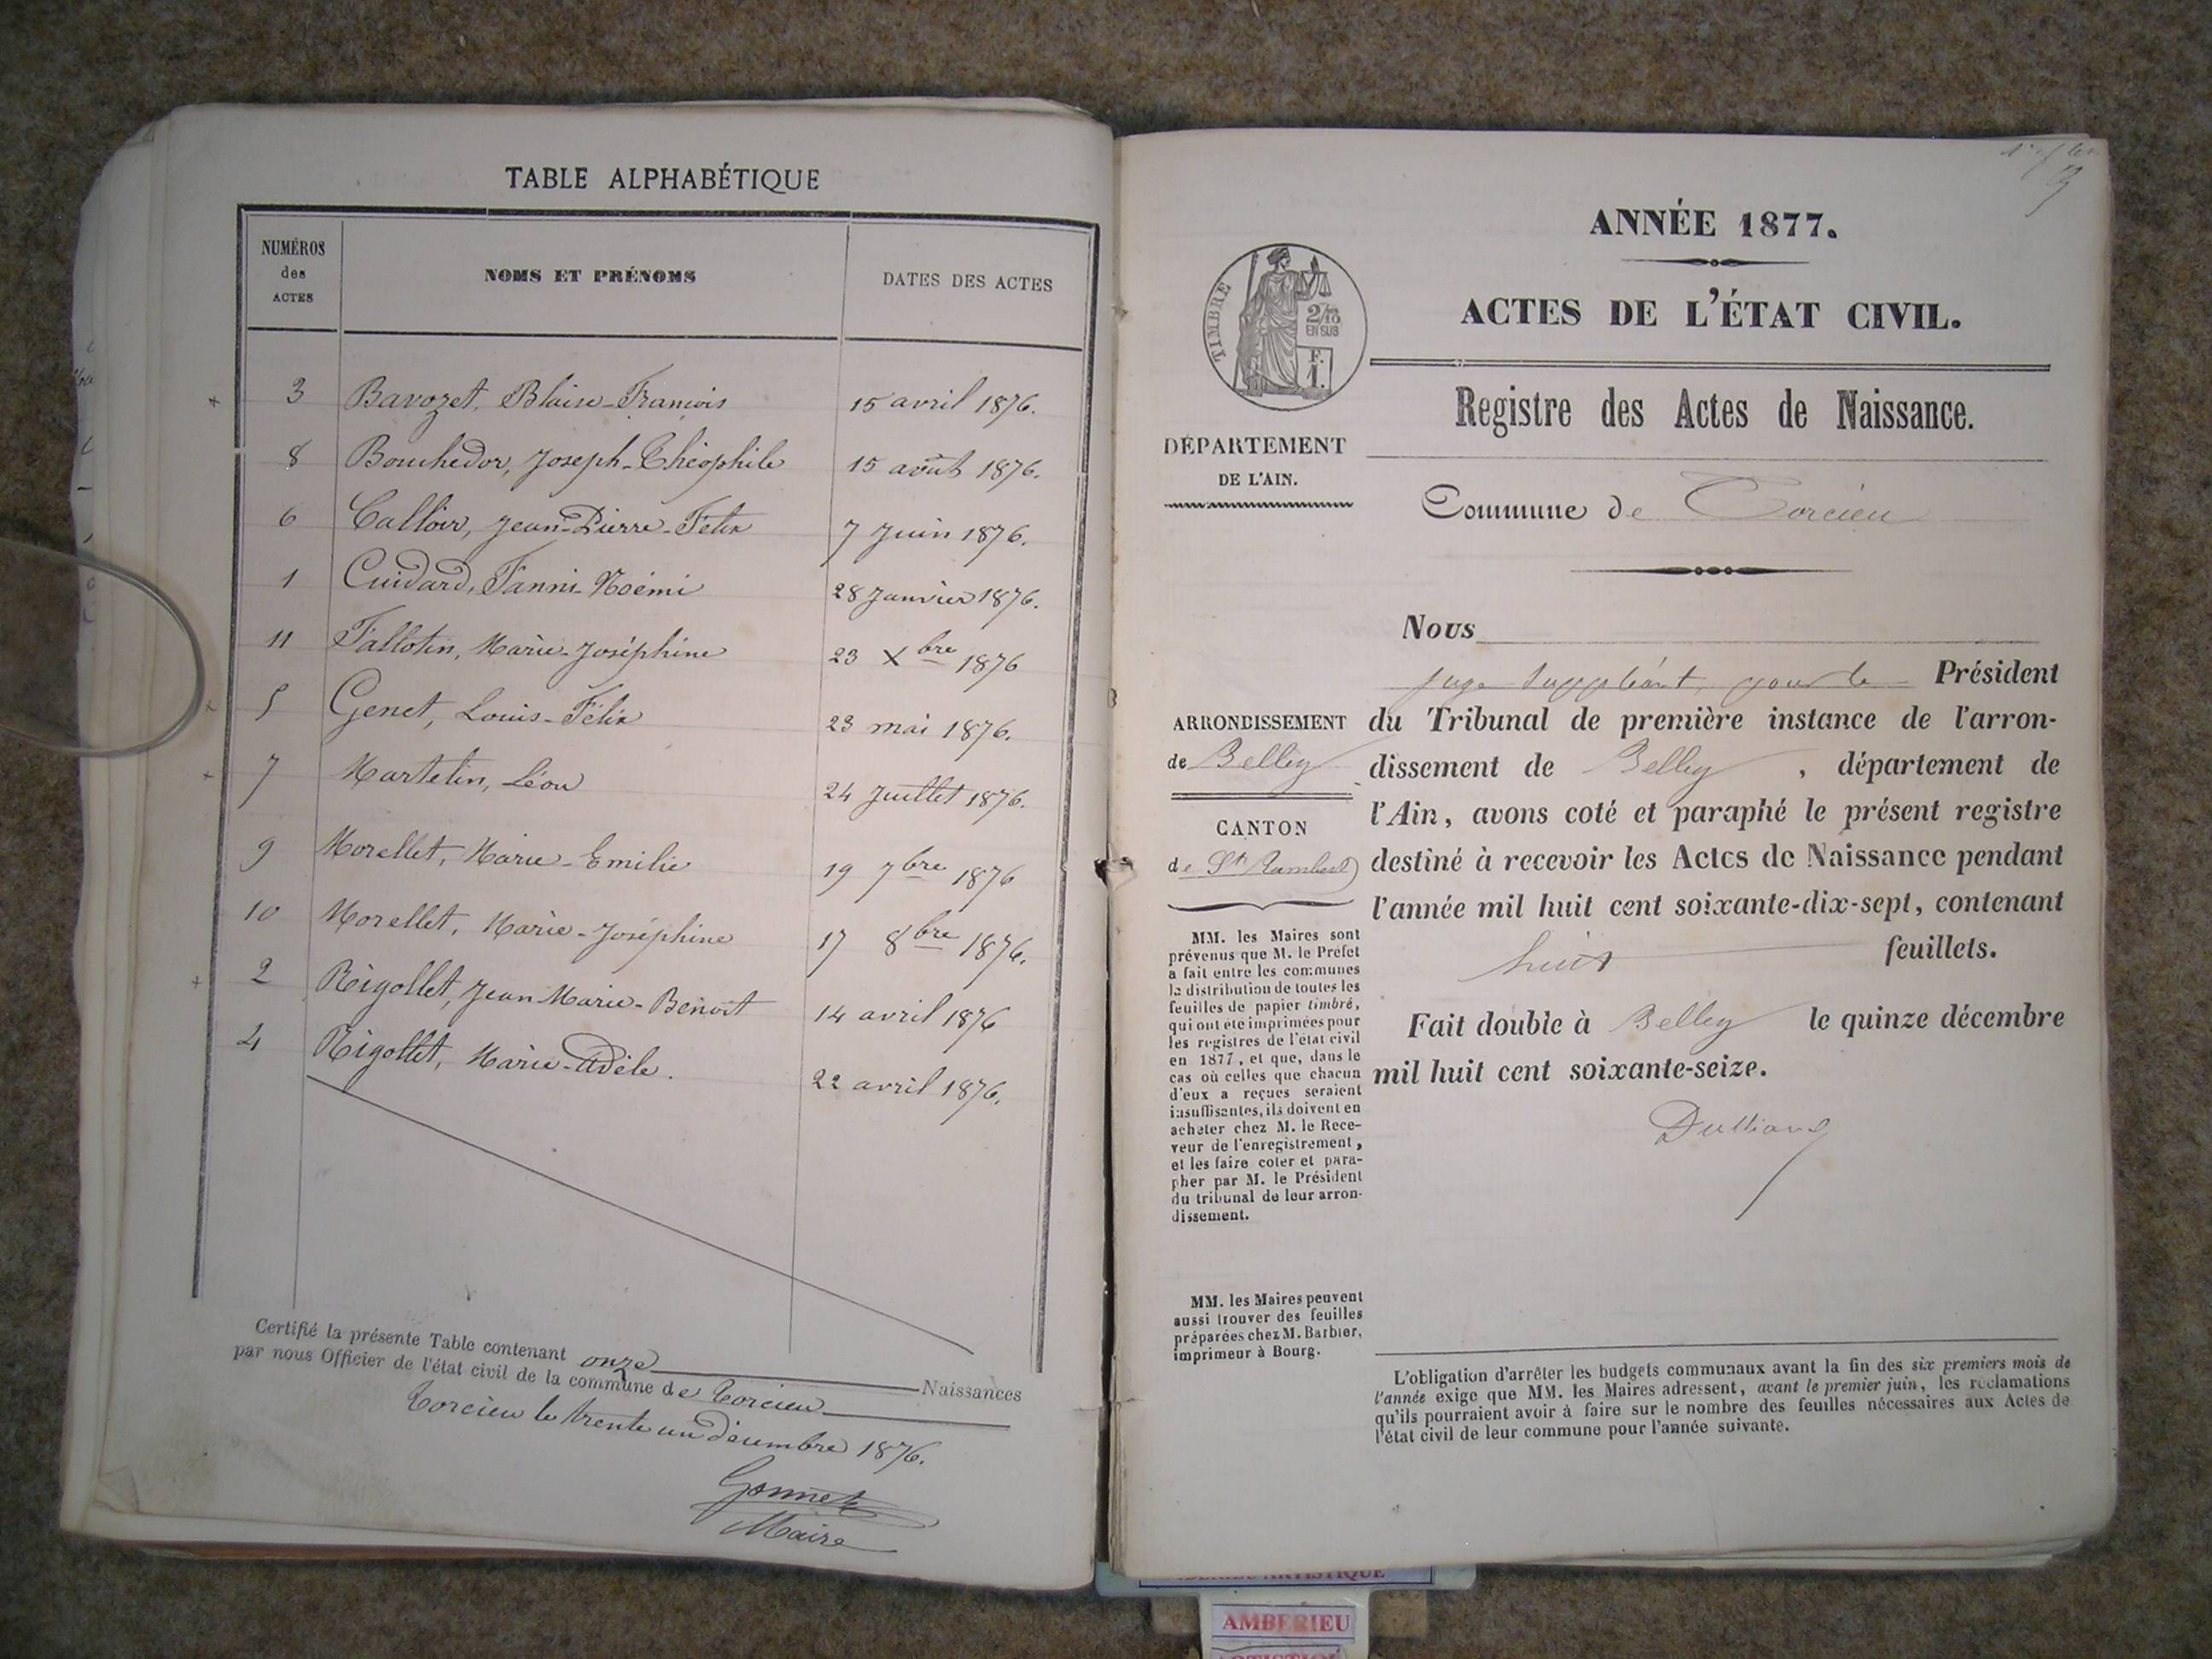 TABLE ALPHABÉTIQUE
NUMÉROS
des
ACTES
NOMS ET PRÉNOMS
DATES DES ACTES
3 Bavozet, Blaise-François 15 avril 1876.
8 Bouchedor, Joseph-Théophile 15 août 1876.
6 Calloir, Jean-Pierre-Félix 7 Juin 1876.
1 Cuidard, Fanni-Noémi 28 Janvier 1876.
11 Fallotin, Marie-Joséphine 23 Xbre 1876
5 Genet, Louis-Félix 23 mai 1876.
7 Martelin, Léon 24 Juillet 1876.
9 Morellet, Marie-Emilie 19 7bre 1876
10 Morellet, Marie-Joséphine 17 8bre 1876.
2 Rigollet, Jean Marie-Benoit 14 avril 1876
4 Rigollet, Marie-Adèle. 22 avril 1876.
Certifié la présente Table contenant onze Naissances
par nous Officier de l'état civil de la commune de Torcieu
Torcieu le trente un décembre 1876.
Gonnet
Maire
ANNÉE 1877.
ACTES DE L'ÉTAT CIVIL.
TIMBRE
2/10
EN SUS
F.
1.
Registre des Actes de Naissance.
DÉPARTEMENT
DE L'AIN.
Commune de Torcieu
Nous
juge suppléant, pour le Président
du Tribunal de première instance de l'arron-
dissement de Belley, département de
l'Ain, avons coté et paraphé le présent registre
destiné à recevoir les Actes de Naissance pendant
l'année mil huit cent soixante-dix-sept, contenant
huit feuillets.
Fait double à Belley le quinze décembre
mil huit cent soixante-seize.
ARRONDISSEMENT
de Belley
CANTON
de St Rambert
MM. les Maires sont
prévenus que M. le Préfet
a fait entre les communes
la distribution de toutes les
feuilles de papier timbré,
qui ont été imprimées pour
les registres de l'état civil
en 1877, et que, dans le
cas où celles que chacun
d'eux a reçues seraient
insuffisantes, ils doivent en
acheter chez M. le Rece-
veur de l'enregistrement,
et les faire coter et para-
pher par M. le Président
du tribunal de leur arron-
dissement.
MM. les Maires peuvent
aussi trouver des feuilles
préparées chez M. Barbier,
imprimeur à Bourg.
L'obligation d'arrêter les budgets communaux avant la fin des six premiers mois de
l'année exige que MM. les Maires adressent, avant le premier juin, les réclamations
qu'ils pourraient avoir à faire sur le nombre des feuilles nécessaires aux Actes de
l'état civil de leur commune pour l'année suivante.
AMBERIEU